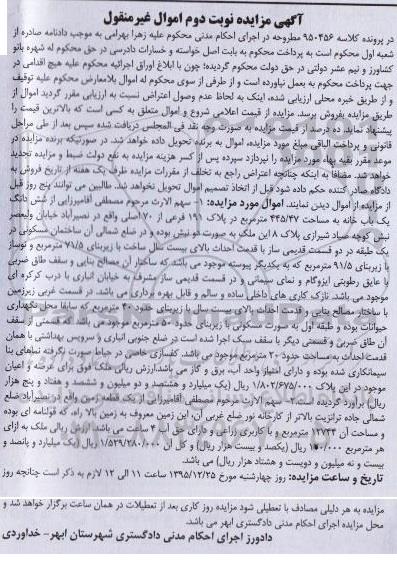 آگهی مزایده نوبت دوم اموال غیرمنقول
در پرونده کلاسه ۹۵۰۴۵۶ مطروحه در اجرای احکام مدنی محکوم علیه زهرا بهرامی به موجب دادنامه صادره از
شعبه اول محکوم است به پرداخت محکوم به بابت اصل خواسته و خسارات دادرسی در حق محکوم له شهره بانو
کشاورز و نیم عشر دولتی در حق دولت محکوم گردیده؛ چون با ابلاغ اوراق اجرائیه محکوم علیه هیچ اقدامی در
جهت پرداخت محکوم به بعمل نیاورده است و از طرفی از سوی محکوم له اموال بلامعارض محکوم علیه توقیف
و از طریق خبره محلی ارزیابی شده، اینک به لحاظ عدم وصول اعتراض نسبت به ارزیابی مقرر گردید اموال از
طریق مزایده بفروش برسد. مزایده از قیمت اعلامی شروع و اموال متعلق به کسی است که بالاترین قیمت را
پیشنهاد نماید. ده درصد از قیمت مزایده به صورت وجه نقد فی المجلس دریافت شده سپس بعد از طی مراحل
قانونی و پرداخت الباقی مبلغ مورد مزایده، اموال به برنده تحویل داده خواهد شد. در صورتیکه برنده مزایده در
موعد مقرر بقیه بهاء مورد مزایده را نپردازد سپرده پس از کسر هزینه مزایده به نفع دولت ضبط و مزایده تجدید
خواهد شد. مضافا به اینکه چنانچه اعتراض راجع به تخلف از مقررات مزایده ظرف یک هفته از تاریخ فروش به
دادگاه صادر کننده حکم داده شود قبل از اتخاذ تصمیم اموال تحویل نخواهد شد. طالبین می توانند پنج روز قبل
از مزایده از اموال دیدن نمایند. اموال مورد مزایده: ۱- سهم الارث مرحوم مصطفی آقامیرزایی از شش دانگ
یک باب خانه به مساحت ۴۴۵/۴۷ مترمربع در پلاک ۱۹۱ فرعی از ۷۰ اصلی واقع در نصیرآباد خیابان ولیعصر
نبش کوچه صیاد شیرازی پلاک ۸ این ملک به صورت دو نبش بوده و در ضلع شمالی آن ساختمان مسکونی در
یک طبقه در دو قسمت قدیمی ساز با قدمت احداث بالای بیست سال ساخت با زیربنای ۷۱/۵ مترمربع و نوساز
با زیربنای ۹۱/۵ مترمربع که به یکدیگر پیوسته موجود می باشد که ساختار آن مصالح بنایی و سقف طاق ضربی
با عایق رطوبتی ایزوگام و نمای سیمانی و در قسمت قدیمی ساز مشرف به خیابان انباری با درب کرکره ای
موجود می باشد. نازک کاری های داخلی ساده و سالم و قابل بهره برداری می باشد. در قسمت غربی زیرزمین
با ساختار مصالح بنایی و قدمت احداث بالای بیست سال با زیربنای حدود ۳۰ مترمربع که سابقا محل نگهداری
حیوانات بوده و طبقه اول به صورت مسکونی با زیربنای حدود ۵۰ مترمربع موجود می باشد که قسمتی از سقف
آن طاق ضربی و قسمتی دیگر با سقف سبک اجرا شده است در ضلع جنوبی انباری و سرویس بهداشتی با همان
قدمت احداث به مساحت حدود ۲۰ مترمربع موجود می باشد. کفسازی خاصی در حیاط صورت نگرفته نماهای بنا
سیمانکاری شده بوده و دارای امتیاز واحد آب، برق و گاز می باشد. ارزش ریالی ملک فوق برای عرصه و اعیان
موجود در این پلاک ۱/۸۰۲/۶۷۵/۰۰۰ ریال (یک میلیارد و هشتصد و دو میلیون و ششصد و هفتاد و پنج هزار
ریال) برآورد گردیده است. ۲- سهم الارث مرحوم مصطفی آقامیرزایی از یک قطعه زمین واقع در نصیرآباد ضلع
شمالی جاده ترانزیت بالاتر از کارخانه نور ضلع غربی آن، این زمین معروف به زمین بالا راه، که قولنامه ای بوده
و مساحت آن ۱۲۷۴۴ مترمربع و با کاربری زراعی و دارای حق آب ۴ ساعت می باشد ارزش ریالی ملک به ازای
هر مترمربع ۱۲۰/۰۰۰ ریال (یکصد و بیست هزار ریال) و کل آن ۱/۵۲۹/۲۸۰/۰۰۰ ریال (یک میلیارد و پانصد و
بیست و نه میلیون و دویست و هشتاد هزار ریال) می باشد.
تاریخ و ساعت مزایده: روز چهارشنبه مورخ ۱۳۹۵/۱۲/۲۵ ساعت ۱۱ الی ۱۲ لازم به ذکر است چنانچه روز
مزایده به هر دلیلی مصادف با تعطیلی شود مزایده روز کاری بعد از تعطیلات در همان ساعت برگزار خواهد شد و
محل مزایده اجرای احکام مدنی دادگستری ابهر می باشد.
دادورز اجرای احکام مدنی دادگستری شهرستان ابهر- خداوردی